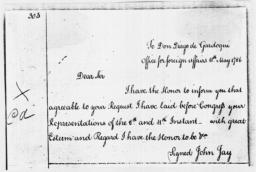 303
To Don Diego de Gardoqui
Office for foreign affairs 11th May 1786
Dear Sir
I have the Honor to inform you that
agreable to your Request I have laid before Congress your
Representations of the 6th and 11th Instant_ with great
Esteem and Regard I have the Honor to be &c.
Signed John Jay